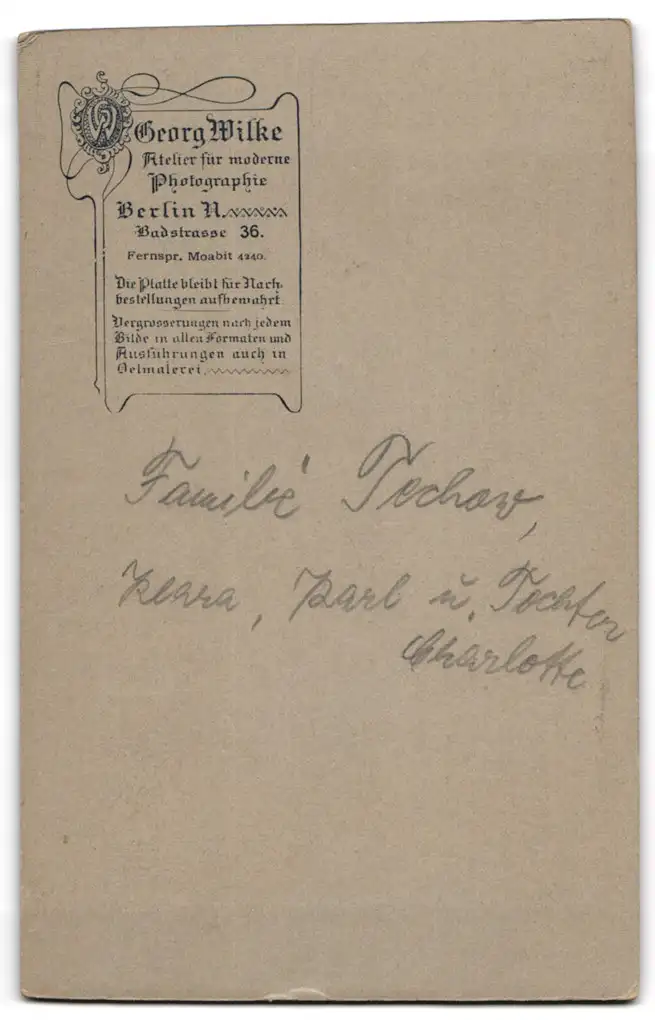 Georg Wilke
Atelier für moderne
Photographie
Berlin N.
Badstrasse 36.
Fernspr. Moabit 4240.
Die Platte bleibt für Nach-
bestellungen aufbewahrt
Vergrosserungen nach jedem
Bilde in allen Formaten und
Ausführungen auch in
Oelmalerei.
Familie Techow,
Klara, Karl u. Tochter
Charlotte